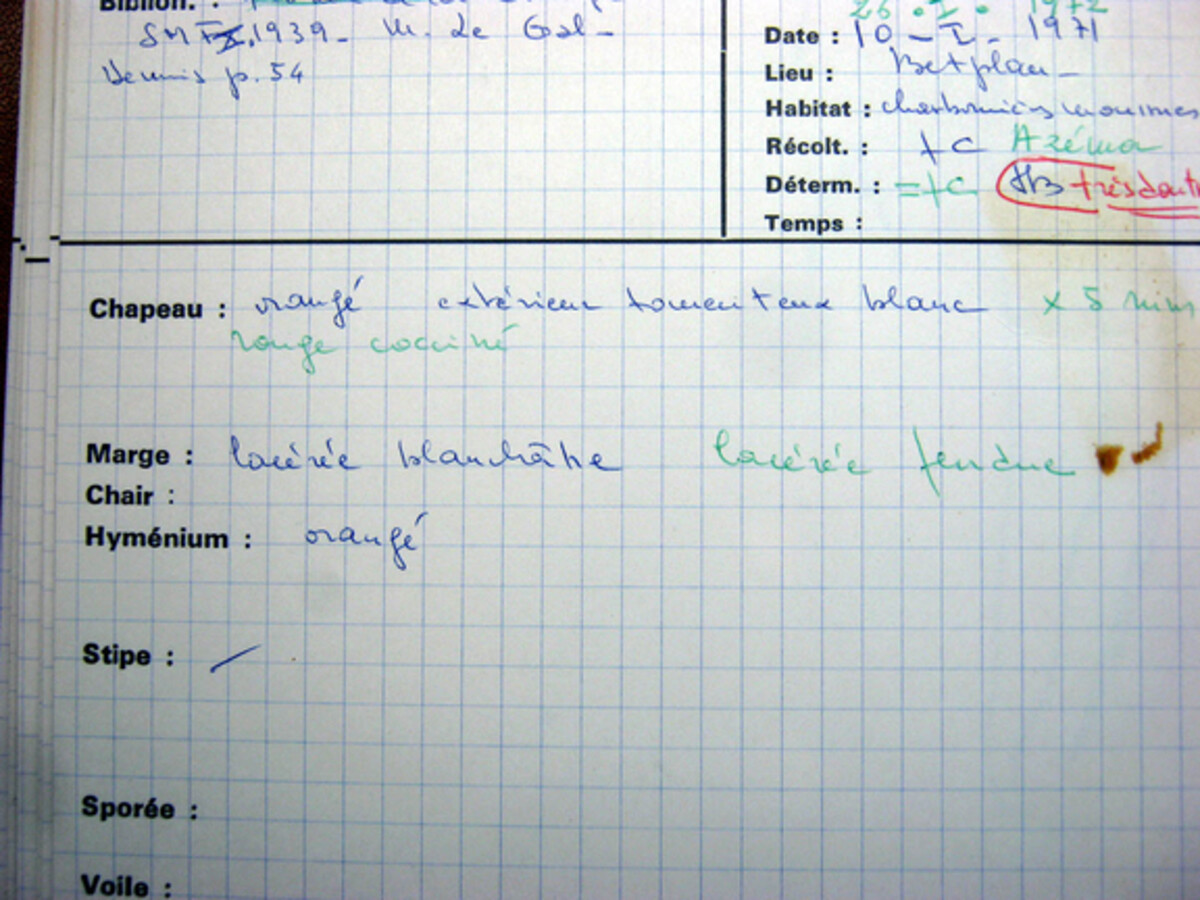 Biblion. :
SMF 1939_ M. Le Gal_
Dennis p. 54
26 . I . 1972
Date : 10 _ I _ 1971
Lieu : Betplan _
Habitat : charbonnières
Récolt. : +C Azéma
Déterm. : =+C HB
Temps :
Chapeau : orangé extérieur tomenteux blanc x 5 mm
rouge cocciné
Marge : lacérée blanchâtre lacérée fendue
Chair :
Hyménium : orangé
Stipe : /
Sporée :
Voile :